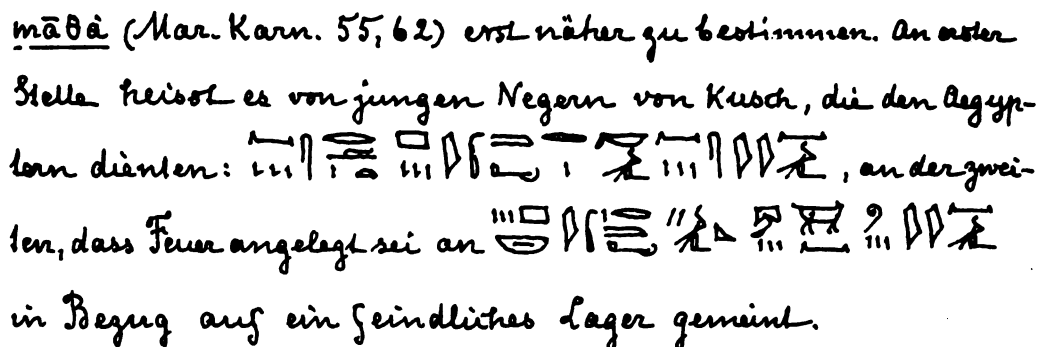 māθȧ (Mar. Karn. 55,62) erst näher zu bestimmen. An erster
Stelle heisst es von jungen Negern von Kusch, die den Aegyp-
tern dienten: , an der zwei-
ten, dass Feuer angelegt sei an
in Bezug auf ein feindliches Lager gemeint.